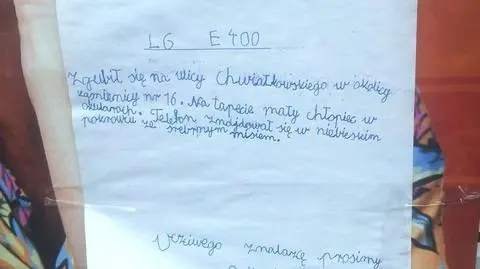 LG E400
Zgubił się na ulicy Chwiatkowskiego w okolicy
kamienicy nr 16. Na tapecie mały chłopiec w
okularach. Telefon znajdował się w niebieskim
pokrowcu ze srebrnym misiem.
Uczciwego znalazcę prosimy